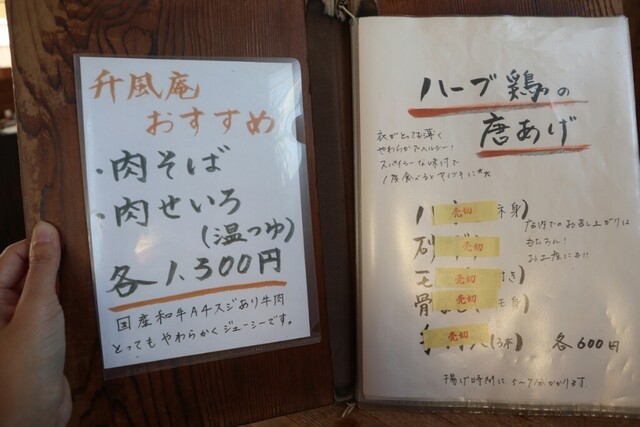 升風庵
おすすめ
・肉そば
・肉せいろ
(温つゆ)
各1,300円
国産和牛A4スジあり牛肉
とってもやわらかくジューシーです。
ハーブ鶏の
唐あげ
衣がとっても薄く
やわらかでヘルシー!
スパイシーな味付で
1度食べると
売切 身)
砂 売切
モ 売切 付き)
骨 売切 身)
手 売切
店内でのお召し上がりは
もちろん!
お土産にも!!
各600円
揚げ時間に5〜7分かかります。